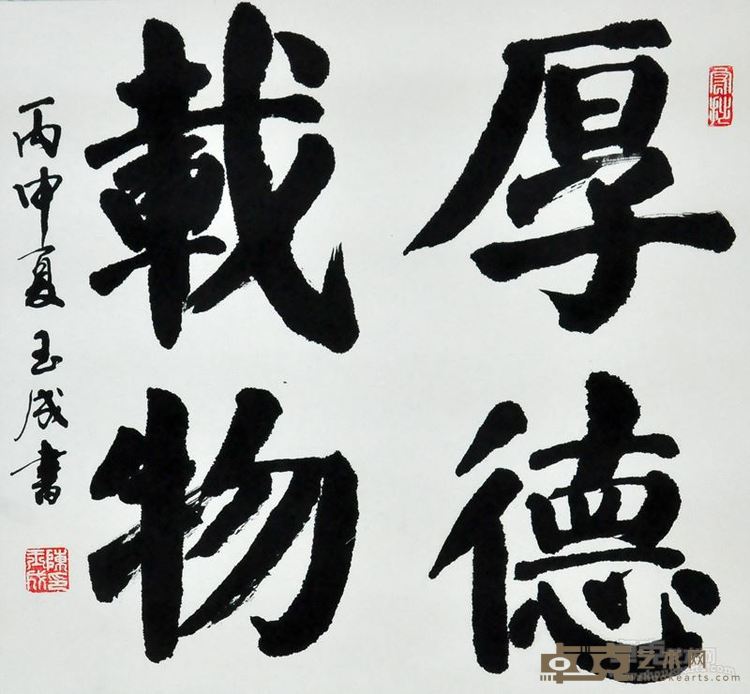 厚德
載物
丙申夏玉成书
卓克艺术网